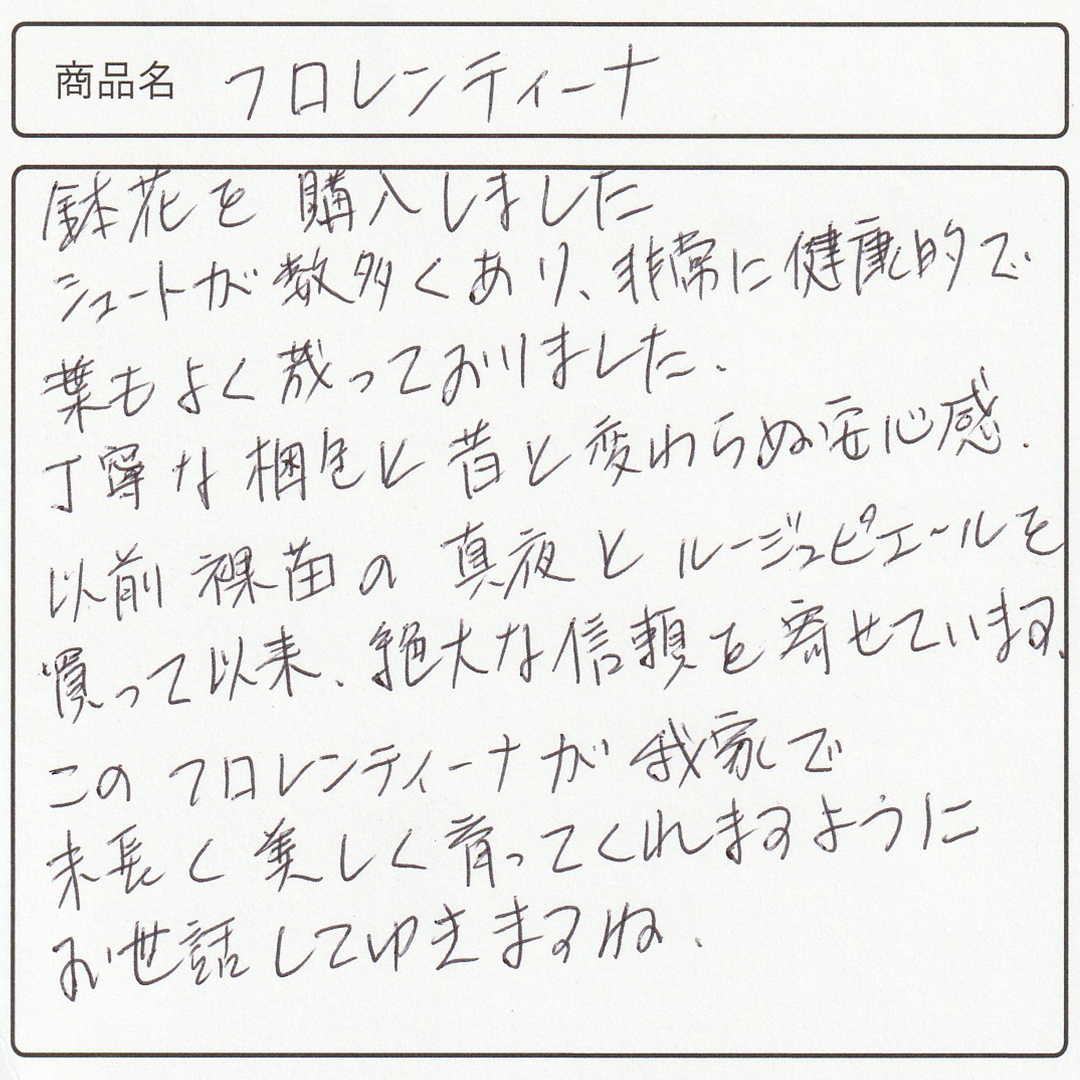 商品名 フロレンティーナ
鉢花を購入しました
シュートが数多くあり、非常に健康的で
葉もよく茂っておりました.
丁寧な梱包と昔と変わらぬ安心感.
以前裸苗の真夜とルージュピエールを
買って以来、絶大な信頼を寄せています.
このフロレンティーナが我家で
末長く美しく育ってくれますように
お世話してゆきますね.